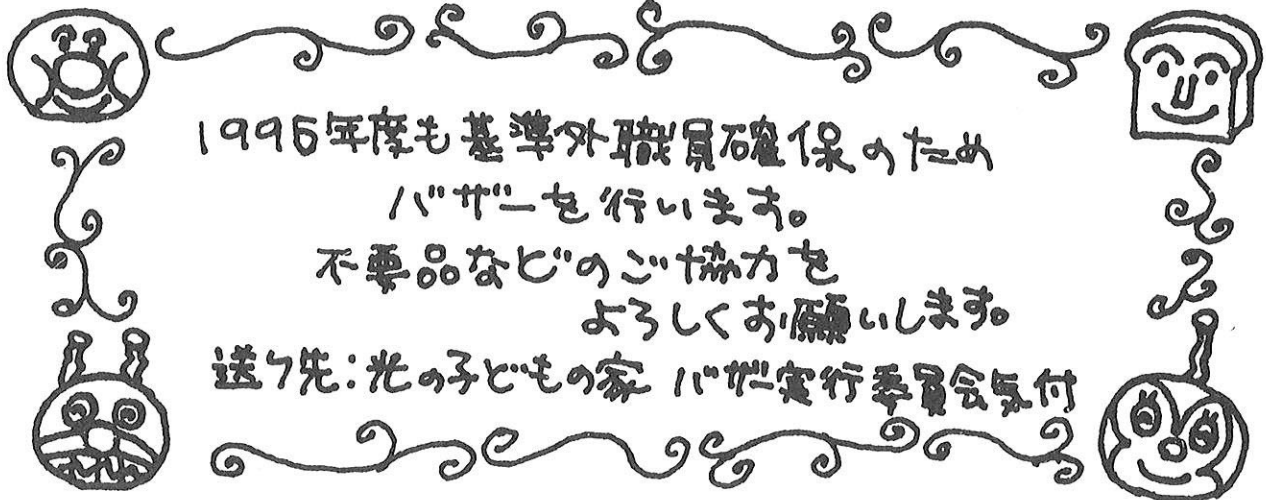 1995年度も基準外職員確保のため
バザーを行います。
不要品などのご協力を
よろしくお願いします。
送り先:光の子どもの家 バザー実行委員会気付